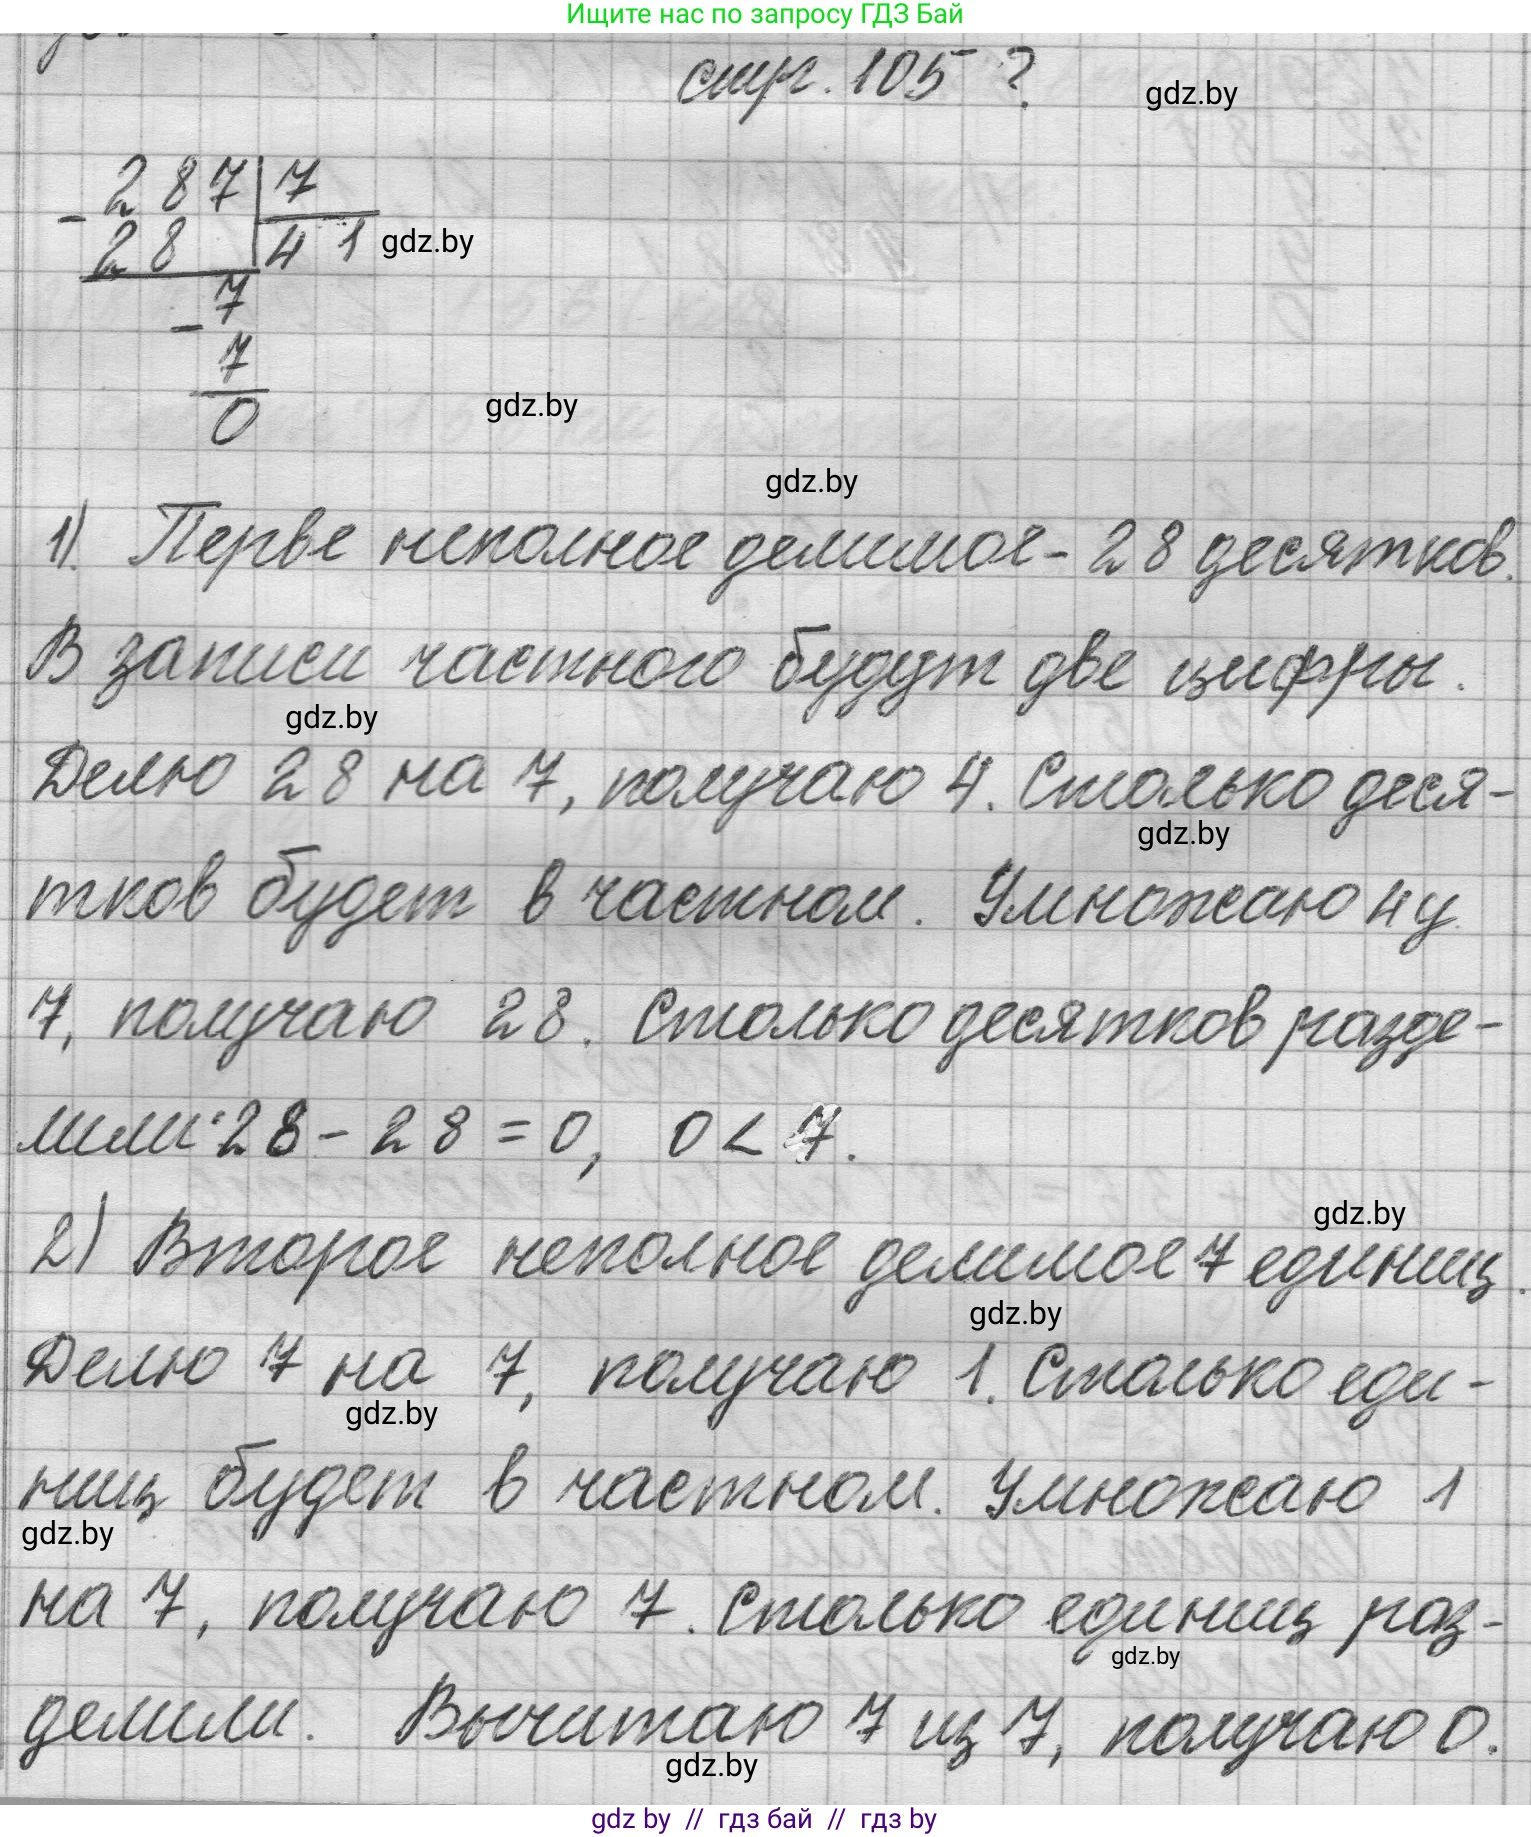 Ищите нас по запросу ГДЗ Бай
стр. 105 ?
gdz.by
- 287 | 7
28 | 41
gdz.by
- 7
7
0
gdz.by
gdz.by
1). Перве неполное делимое - 28 десятков.
В записи частного будут две цифры.
gdz.by
Делю 28 на 7, получаю 4. Столько деся-
gdz.by
тков будет в частном. Умножаю 4 у
7, получаю 28. Столько десятков разде-
лили: 28 - 28 = 0, 0 < 7.
gdz.by
2) Второе неполное делимое 7 единиц.
gdz.by
Делю 7 на 7, получаю 1. Столько еди-
gdz.by
ниц будет в частном. Умножаю 1
gdz.by
на 7, получаю 7. Столько единиц раз-
gdz.by
делили. Вычитаю 7 из 7, получаю 0.
gdz.by
gdz by // гдз бай // гдз by